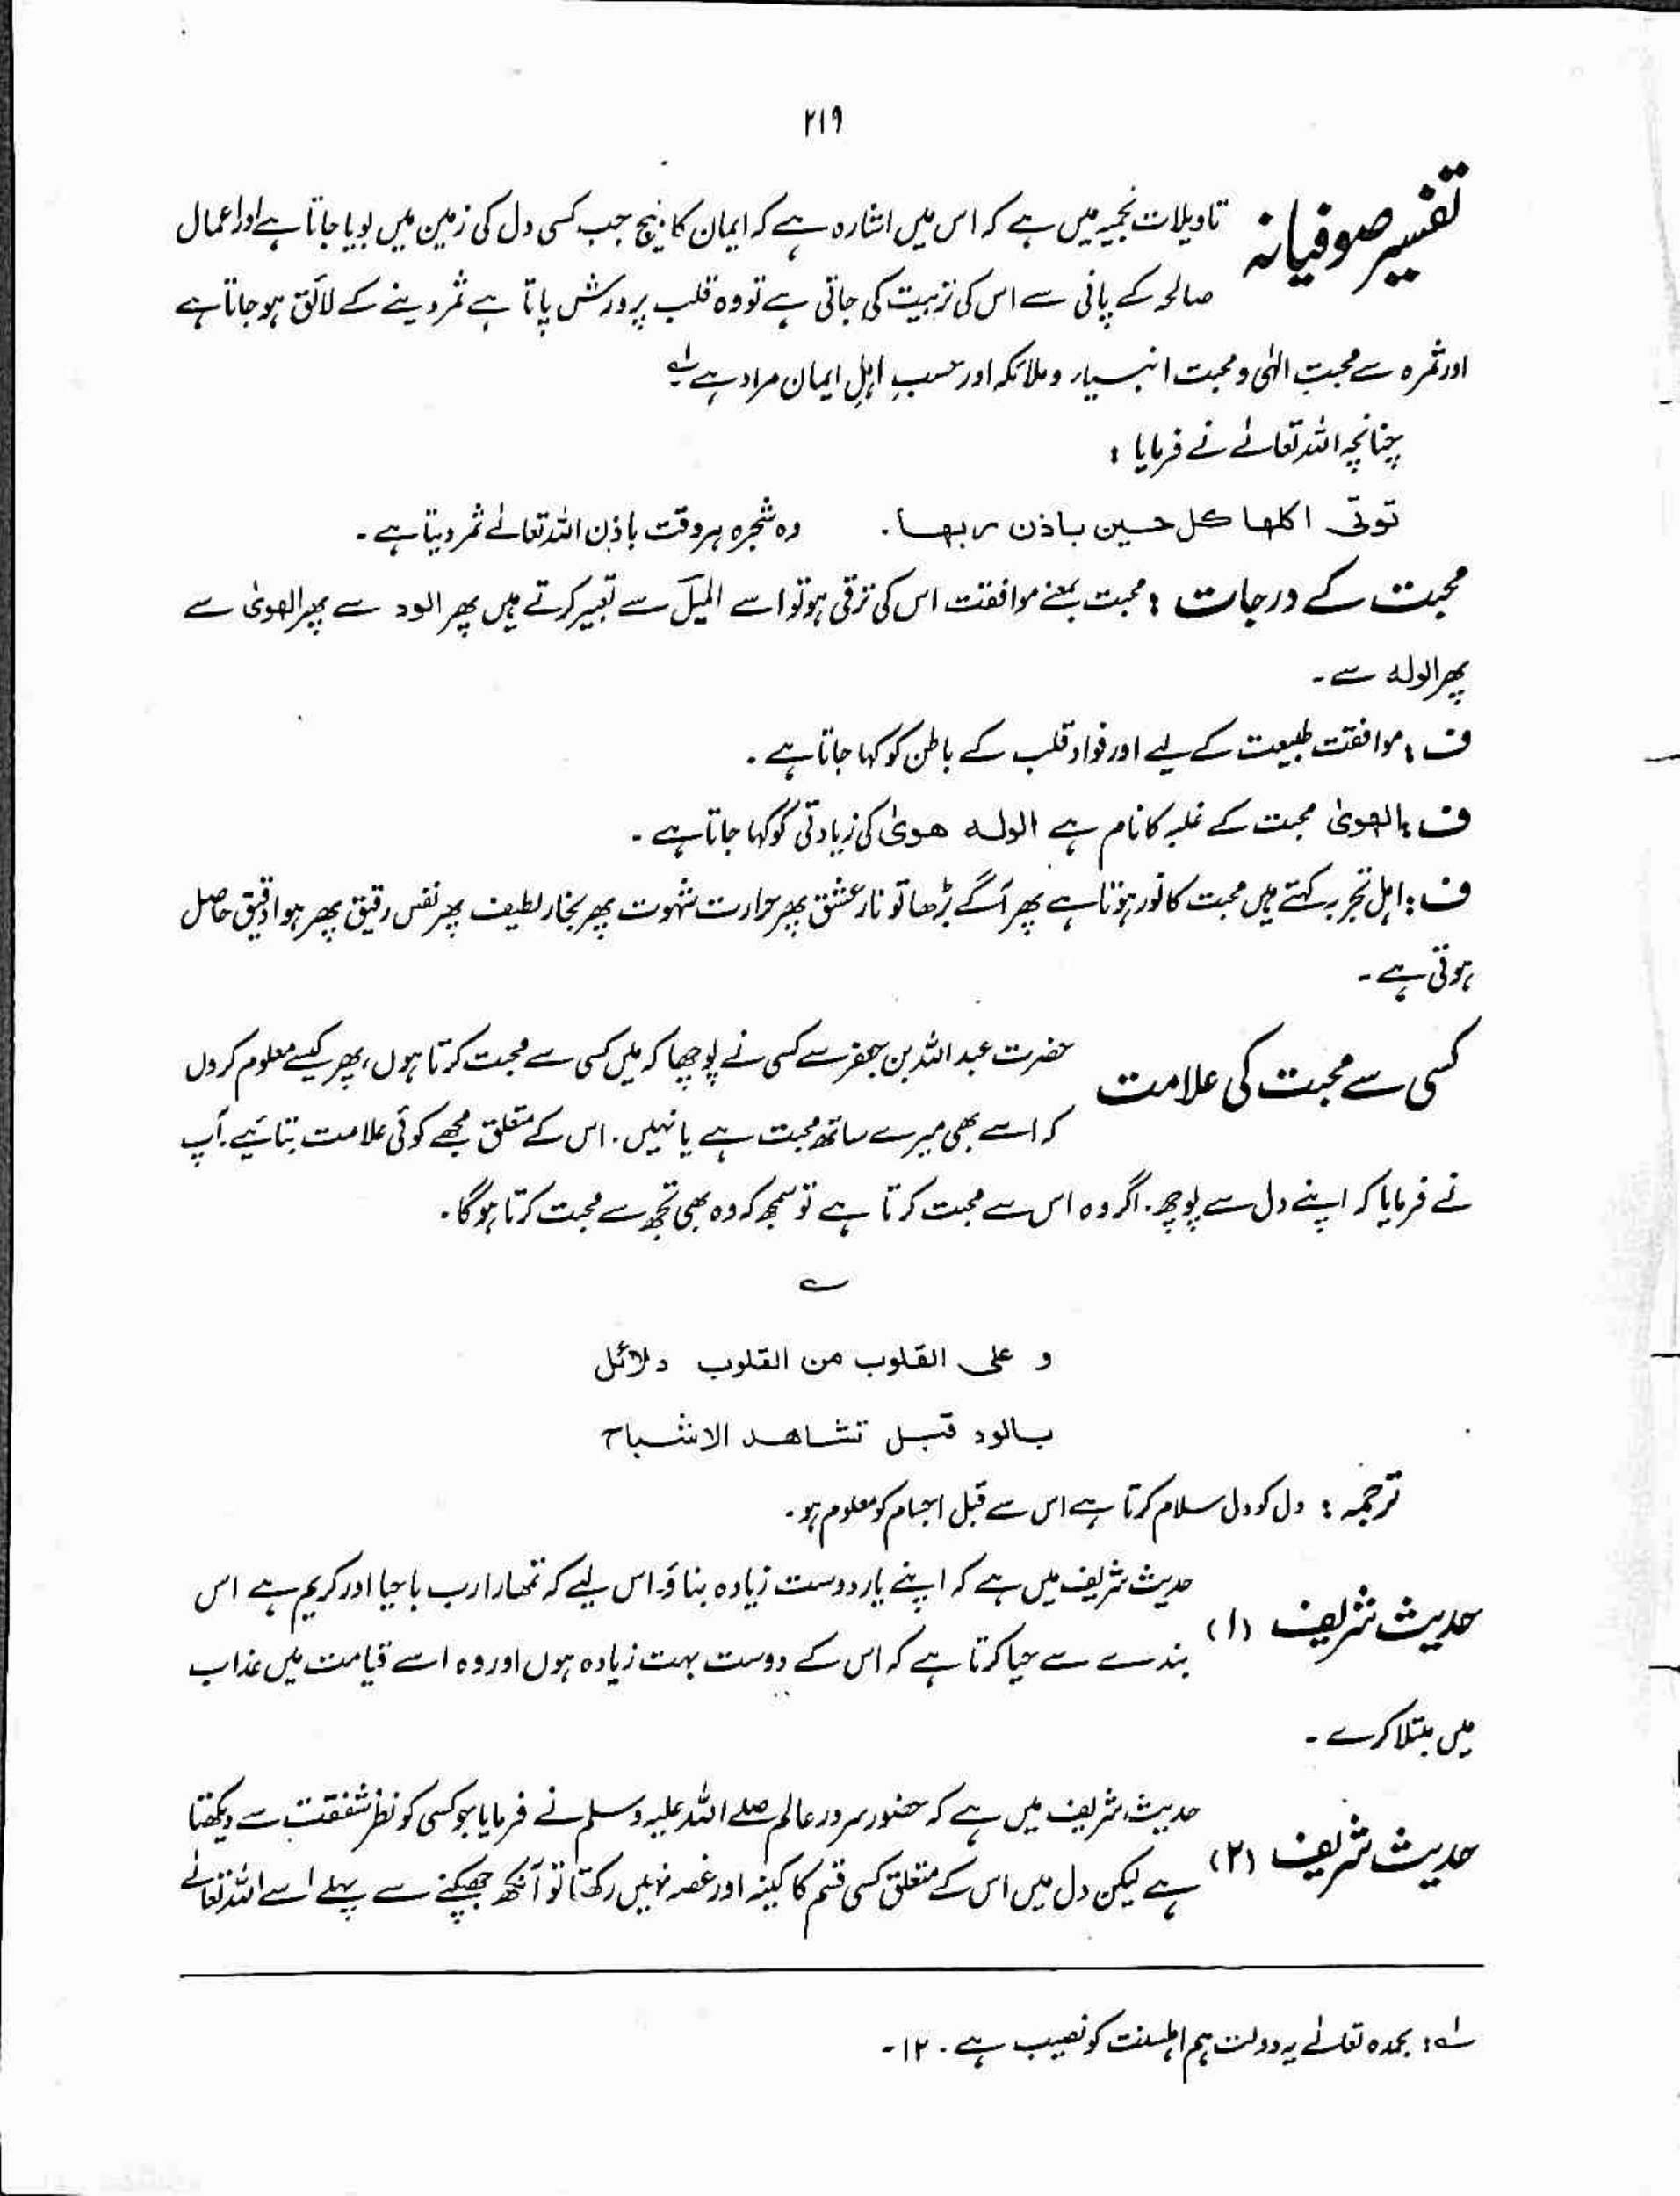 ۲۱۹
تفسیر صوفیانہ
تاویلات نجمیہ میں ہے کہ اس میں اشارہ ہے کہ ایمان کا بیج جب کسی دل کی زمین میں بویا جاتا ہے اور اعمال
صالحہ کے پانی سے اس کی تربیت کی جاتی ہے تو وہ قلب پرورش پاتا ہے ثمر دینے کے لائق ہو جاتا ہے
اور ثمرہ سے محبت الٰہی و محبت انبیاء و ملائکہ اور حسبِ اہلِ ایمان مراد ہے لے
چنانچہ اللہ تعالےٰ نے فرمایا :
توتی اکلھا کل حسین باذن ربھا . وہ شجرہ ہر وقت باذن اللہ تعالےٰ ثمر دیتا ہے ۔
محبت کے درجات : محبت بمعنے موافقت اس کی ترقی ہو تو اسے المیل سے تعبیر کرتے ہیں پھر الود سے پھر الھویٰ سے
پھر الولہ سے ۔
ف : موافقت طبیعت کے لیے اور فواد قلب کے باطن کو کہا جاتا ہے .
ف : الھویٰ محبت کے غلبہ کا نام ہے الولہ ھویٰ کی زیادتی کو کہا جاتا ہے ۔
ف : اہل تجربہ کہتے ہیں محبت کا نور ہوتا ہے پھر آگے بڑھا تو نار عشق پھر حرارت شہوت پھر بخار لطیف پھر نفس رقیق پھر ہوا دقیق حاصل
ہوتی ہے ۔
کسی سے محبت کی علامت
حضرت عبد اللہ بن جعفر سے کسی نے پوچھا کہ میں کسی سے محبت کرتا ہوں ، پھر کیسے معلوم کروں
کہ اسے بھی میرے ساتھ محبت ہے یا نہیں . اس کے متعلق مجھے کوئی علامت بتائیے . آپ
نے فرمایا کہ اپنے دل سے پوچھ . اگر وہ اس سے محبت کرتا ہے تو سمجھ کہ وہ بھی تجھ سے محبت کرتا ہوگا .
؎
و علی القلوب من القلوب دلائل
بالود قبل تشاھد الاشباح
ترجمہ : دل کو دل سلام کرتا ہے اس سے قبل اجسام کو معلوم ہو .
حدیث شریف (۱)
حدیث شریف میں ہے کہ اپنے یار دوست زیادہ بناؤ اس لیے کہ تمھارا رب باحیا اور کریم ہے اس
بندے سے حیا کرتا ہے کہ اس کے دوست بہت زیادہ ہوں اور وہ اسے قیامت میں عذاب
میں مبتلا کرے ۔
حدیث شریف (۲)
حدیث شریف میں ہے کہ حضور سرور عالم صلے اللہ علیہ وسلم نے فرمایا جو کسی کو نظر شفقت سے دیکھتا
ہے لیکن دل میں اس کے متعلق کسی قسم کا کینہ اور غصہ نہیں رکھتا تو آنکھ جھپکنے سے پہلے اسے اللہ تعالےٰ
لے : بحمدہ تعالےٰ یہ دولت ہم اہلسنت کو نصیب ہے . ۱۲ ۔